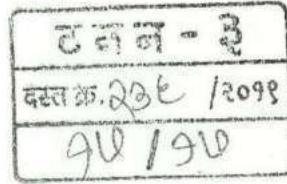 ट न न - ३
दस्त क्र. २३६ /२०१९
१७ / १७